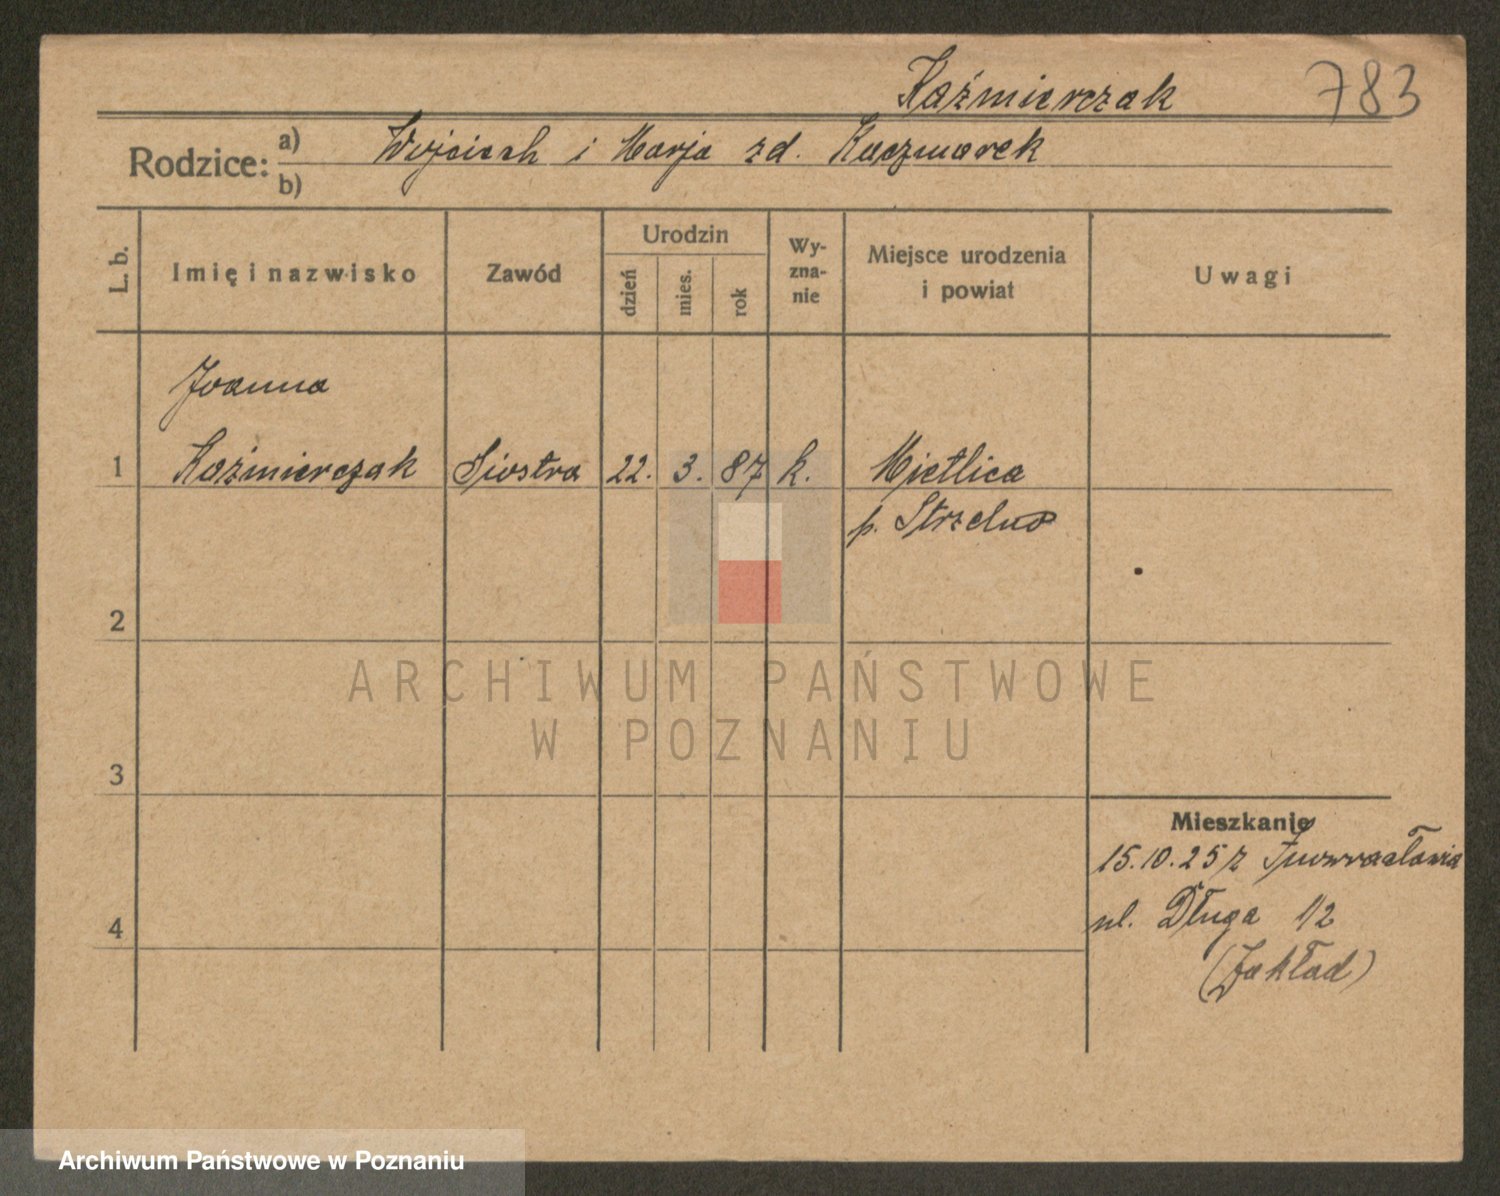 Kaźmierczak 783
Rodzice: a) Wojciech i Marja zd. Kaczmarek
b)
L. b.
Imię i nazwisko
Zawód
Urodzin
dzień
mies.
rok
Wy-
zna-
nie
Miejsce urodzenia
i powiat
Uwagi
Joanna
1 Kaźmierczak Siostra 22. 3. 87 k. Mietlica
p. Strzelno
2
3
4
Mieszkanie
15.10.25 z Inowrocławia
ul. Długa 1/2
(Zakład)
ARCHIWUM PAŃSTWOWE
W POZNANIU
Archiwum Państwowe w Poznaniu